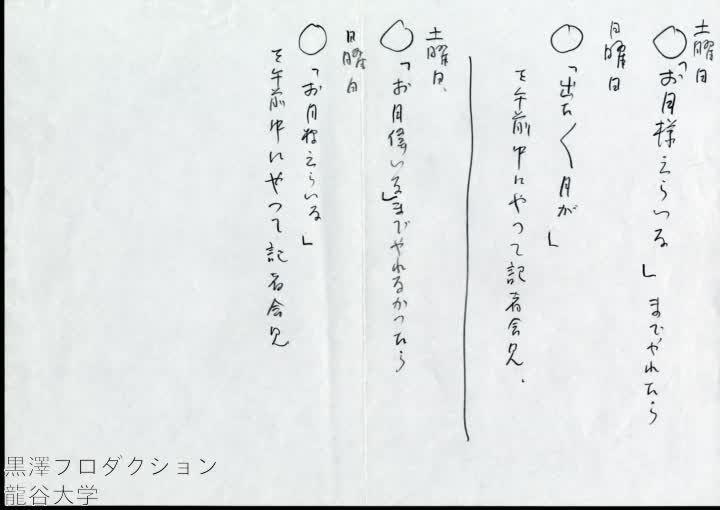 土曜日
○「お月様えらいる」までやれたら
日曜日
○「出た〱月が」
を午前中にやって記者会見、
土曜日、
○「お月偉いる」までやれるかったら
日曜日
○「お月様えらいる」
を午前中にやって記者会見
黒澤フロダクション
龍谷大学